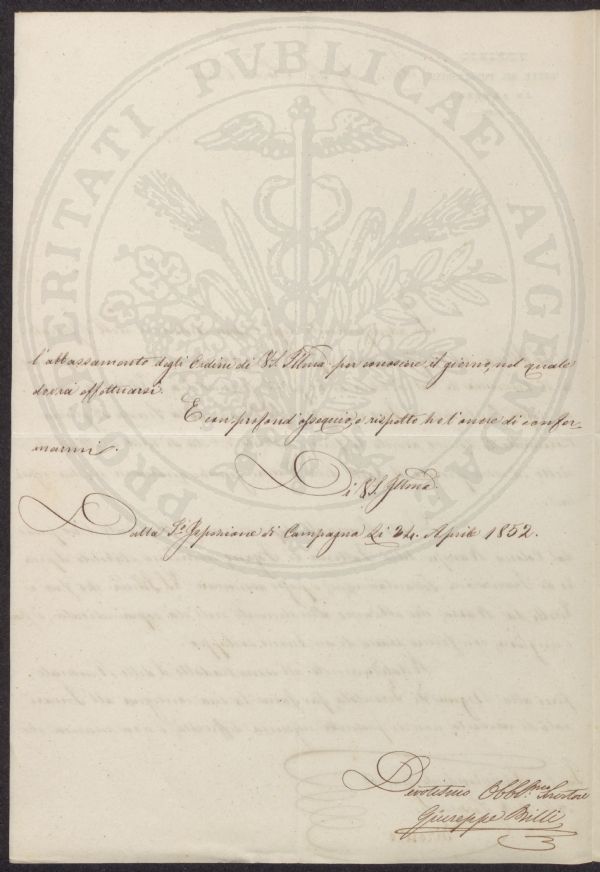 PROSPERITATI PVBLICAE AVGENDAE
l'abbassamento degli Ordini di V.S. Illma per conoscere il giorno, nel quale
dovrà effettuarsi.
E con profond'ossequio, e rispetto ho l'onore di confer-
marmi.
Di V.S. Illma
Dalla Sa. Ispezione di Campagna li 24. Aprile 1852.
Devotismo Obblmo Servitore
Giuseppe Billi